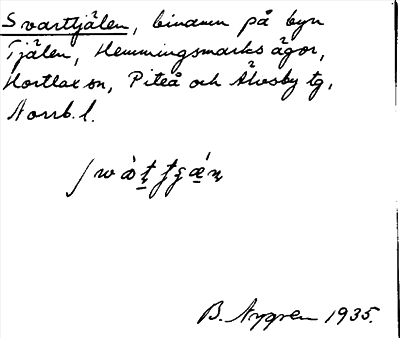 Svarttjälen, binamn på byn
Tjälen, Hemmingsmarks ägor,
Hortlax sn, Piteå och Älvsby tg,
Norrb. l.
B. Nygren 1935.